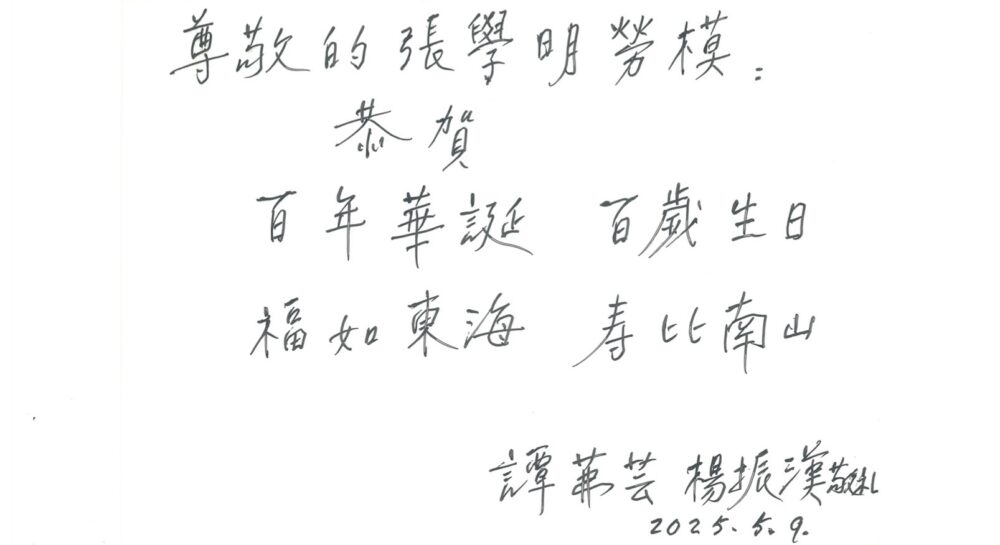 尊敬的張學明勞模：
恭賀
百年華誕 百歲生日
福如東海 寿比南山
譚茀芸 楊振漢敬礼
2025.5.9.